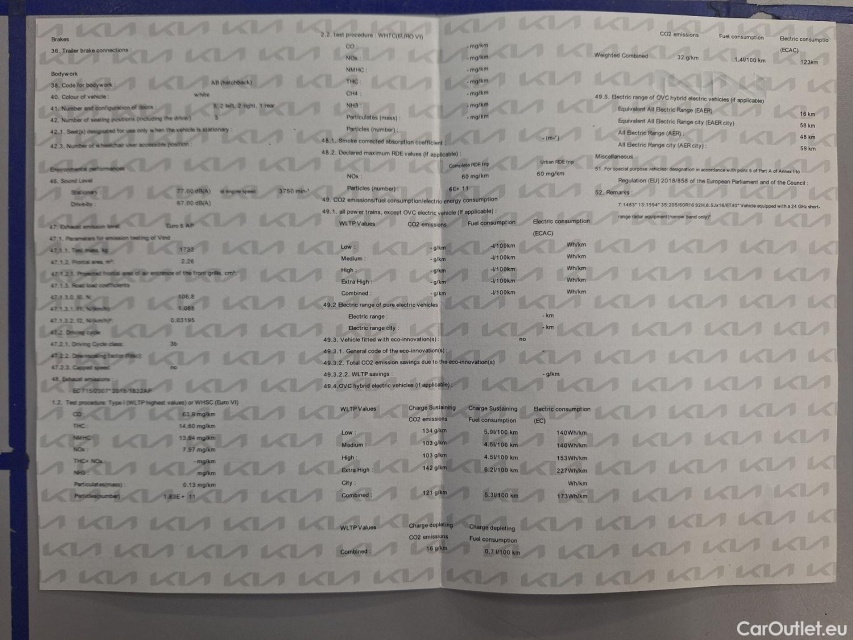 Brakes
36. Trailer brake connections
Bodywork
38. Code for bodywork : AB (hatchback)
40. Colour of vehicle : white
41. Number and configuration of doors 5, 2 left, 2 right, 1 rear
42. Number of seating positions (including the driver) 5
42.1. Seat(s) designated for use only when the vehicle is stationary
42.3. Number of wheelchair user accessible position :
Environmental performances
46. Sound Level
Stationary 77.00 dB(A) at engine speed 3750 min-¹
Drive-by 67.00 dB(A)
47. Exhaust emission level Euro 6 AP
47.1. Parameters for emission testing of Vind
47.1.1. Test mass, kg 1733
47.1.2. Frontal area, m² 2.26
47.1.2.1. Projected frontal area of air entrance of the front grille, cm²
47.1.3. Road load coefficients
47.1.3.0. f0, N
47.1.3.1. f1, N/(km/h)
47.1.3.2. f2, N/(km/h)² 0.03195
47.2. Driving cycle
47.2.1. Driving Cycle class 3b
47.2.2. Downscaling factor (fdsc)
47.2.3. Capped speed no
48. Exhaust emissions :
1.2. Test procedure: Type I (WLTP highest values) or WHSC (Euro VI)
CO mg/km
THC : 14.60 mg/km
NMHC : 13.94 mg/km
NOx : 7.97 mg/km
THC+ NOx : - mg/km
NH3 - mg/km
Particulates(mass) : 0.13 mg/km
Particles(number) : 11
2.2. Test procedure : WHTC(EURO VI)
CO - mg/km
NOx - mg/km
NMHC - mg/km
THC : - mg/km
CH4 : - mg/km
NH3 - mg/km
Particulates (mass) : - mg/km
Particles (number) :
48.1. Smoke corrected absorption coefficient : - (m-¹)
48.2. Declared maximum RDE values (if applicable) :
Complete RDE trip Urban RDE trip
NOx 60 mg/km 60 mg/km
Particles (number) : 6E+ 11
49. CO2 emissions/fuel consumption/electric energy consumption
49.1. all power trains, except OVC electric vehicle (if applicable) :
WLTP Values CO2 emissions Fuel consumption Electric consumption
(ECAC)
Low : - g/km -l/100km Wh/km
Medium : - g/km -l/100km Wh/km
High : - g/km -l/100km Wh/km
Extra High : - g/km -l/100km Wh/km
Combined : - g/km -l/100km Wh/km
49.2 Electric range of pure electric vehicles
Electric range : - km
Electric range city - km
49.3. Vehicle fitted with eco-innovation(s) : no
49.3.1. General code of the eco-innovation(s) : -
49.3.2. Total CO2 emission savings due to the eco-innovation(s)
49.3.2.2. WLTP savings - g/km
49.4 OVC hybrid electric vehicles (if applicable) :
WLTP Values Charge Sustaining Charge Sustaining Electric consumption
CO2 emissions Fuel consumption (EC)
Low : 134 g/km 5.9l/100 km 140Wh/km
Medium 103 g/km 4.5l/100 km 140Wh/km
High : 103 g/km 4.5l/100 km 153Wh/km
Extra High 142 g/km 6.2l/100 km 227Wh/km
City Wh/km
Combined : 121 g/km 5.3l/100 km 173Wh/km
WLTP Values Charge depleting Charge depleting
CO2 emissions Fuel consumption
Combined : 16 g/km 0.7 l/100 km
CO2 emissions Fuel consumption Electric consumptio
(ECAC)
Weighted Combined 32 g/km 1,4l/100 km 123km
49.5. Electric range of OVC hybrid electric vehicles (if applicable)
Equivalent All Electric Range (EAER) km
Equivalent All Electric Range city (EAER city) km
All Electric Range (AER) : km
All Electric Range city (AER city) 59 km
Miscellaneous
51. For special purpose vehicles: designation in accordance with point 5 of Part A of Annex I to
Regulation (EU) 2018/858 of the European Parliament and of the Council :
52. Remarks :
Vehicle equipped with a 24 GHz short-
range radar equipment (narrow band only)"
CarOutlet.eu